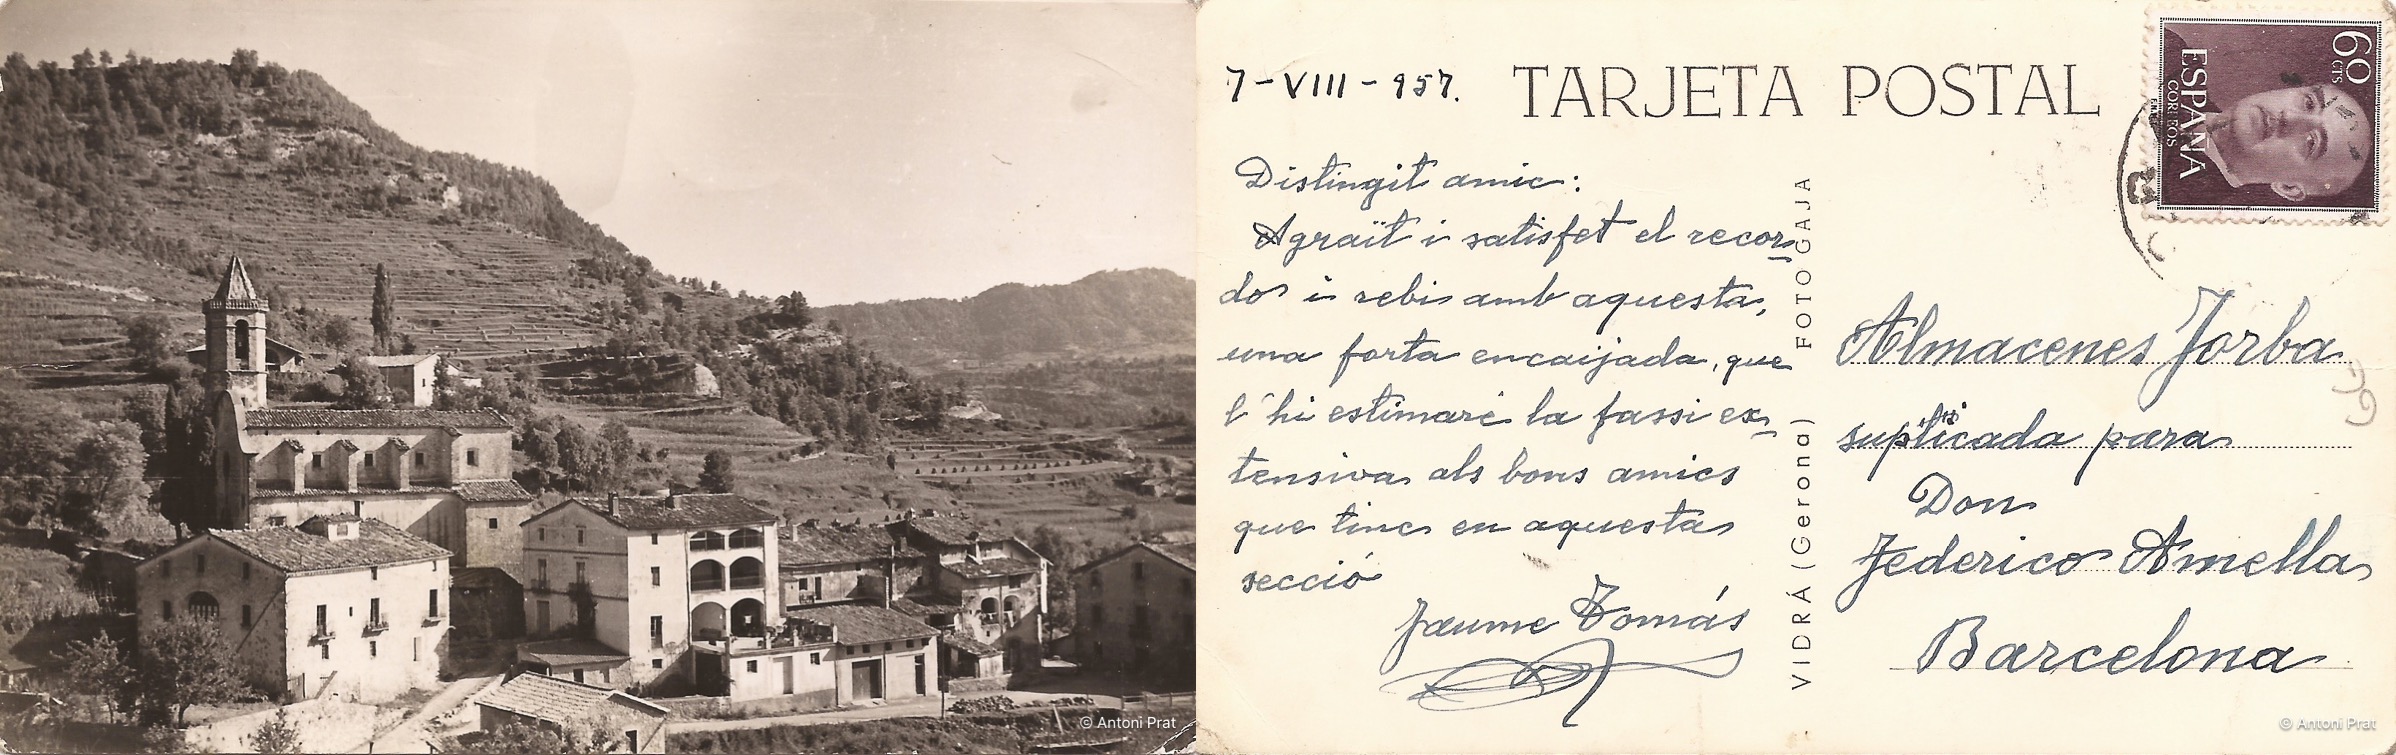 7-VIII-957.
TARJETA POSTAL
60 CTS
ESPAÑA
CORREOS
Distingit amic:
Agraït i satisfet el recor-
do i rebi amb aquesta,
una forta encaijada, que
l'hi estimaré la fassi ex-
tensiva als bons amics
que tinc en aquesta
secció
Jaume Tomás
VIDRÁ (Gerona) FOTO GAJA
Almacenes Jorba
suplicada para
Don
Federico Amella
Barcelona
© Antoni Prat
© Antoni Prat